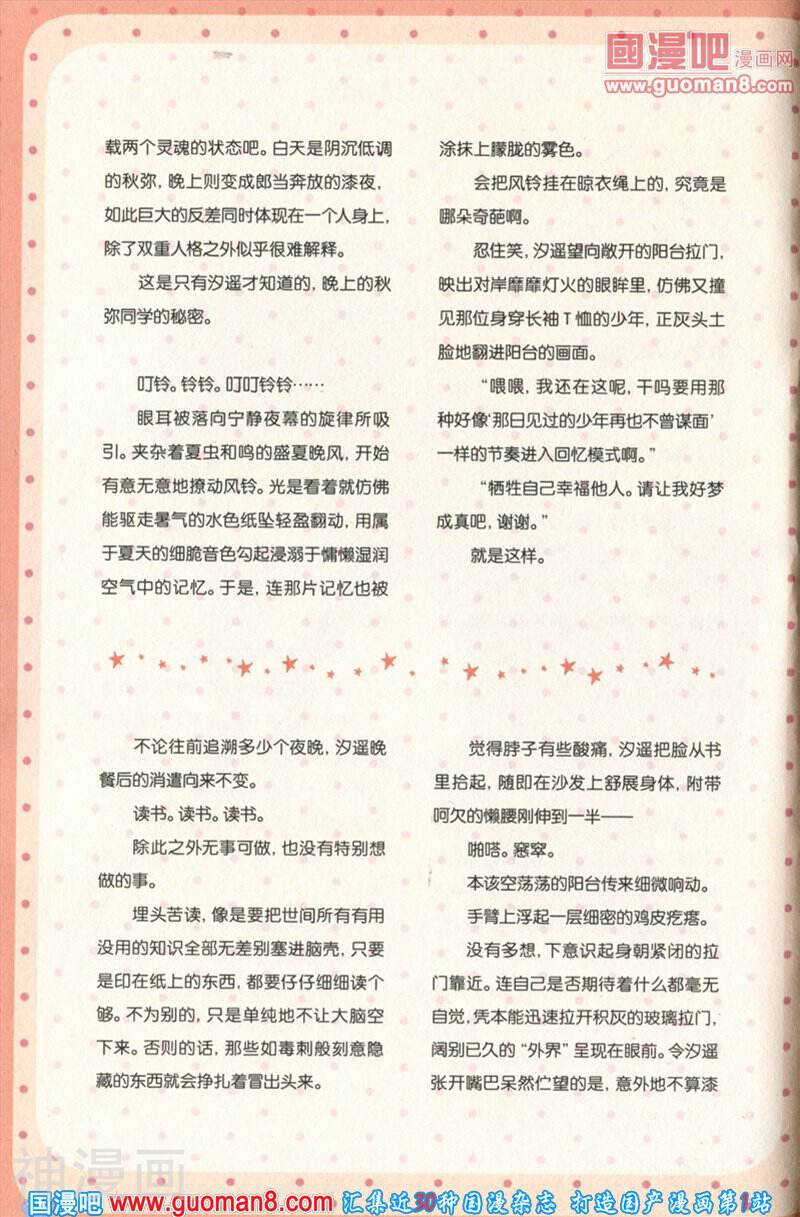 國漫吧漫画网
www.guoman8.com
载两个灵魂的状态吧。白天是阴沉低调
的秋弥，晚上则变成郎当奔放的漆夜，
如此巨大的反差同时体现在一个人身上，
除了双重人格之外似乎很难解释。
这是只有汐遥才知道的，晚上的秋
弥同学的秘密。
叮铃。铃铃。叮叮铃铃……
眼耳被落向宁静夜幕的旋律所吸
引。夹杂着夏虫和鸣的盛夏晚风，开始
有意无意地撩动风铃。光是看着就仿佛
能驱走暑气的水色纸坠轻盈翻动，用属
于夏天的细脆音色勾起浸溺于慵懒湿润
空气中的记忆。于是，连那片记忆也被
涂抹上朦胧的雾色。
会把风铃挂在晾衣绳上的，究竟是
哪朵奇葩啊。
忍住笑，汐遥望向敞开的阳台拉门，
映出对岸靡靡灯火的眼眸里，仿佛又撞
见那位身穿长袖T恤的少年，正灰头土
脸地翻进阳台的画面。
“喂喂，我还在这呢，干吗要用那
种好像‘那日见过的少年再也不曾谋面’
一样的节奏进入回忆模式啊。”
“牺牲自己幸福他人。请让我好梦
成真吧，谢谢。”
就是这样。
不论往前追溯多少个夜晚，汐遥晚
餐后的消遣向来不变。
读书。读书。读书。
除此之外无事可做，也没有特别想
做的事。
埋头苦读，像是要把世间所有有用
没用的知识全部无差别塞进脑壳，只要
是印在纸上的东西，都要仔仔细细读个
够。不为别的，只是单纯地不让大脑空
下来。否则的话，那些如毒刺般刻意隐
藏的东西就会挣扎着冒出头来。
觉得脖子有些酸痛，汐遥把脸从书
里拾起，随即在沙发上舒展身体，附带
呵欠的懒腰刚伸到一半——
啪嗒。窸窣。
本该空荡荡的阳台传来细微响动。
手臂上浮起一层细密的鸡皮疙瘩。
没有多想，下意识起身朝紧闭的拉
门靠近。连自己是否期待着什么都毫无
自觉，凭本能迅速拉开积灰的玻璃拉门，
阔别已久的“外界”呈现在眼前。令汐遥
张开嘴巴呆然伫望的是，意外地不算漆
神漫画
国漫吧 www.guoman8.com 汇集近30种国漫杂志 打造国产漫画第1站